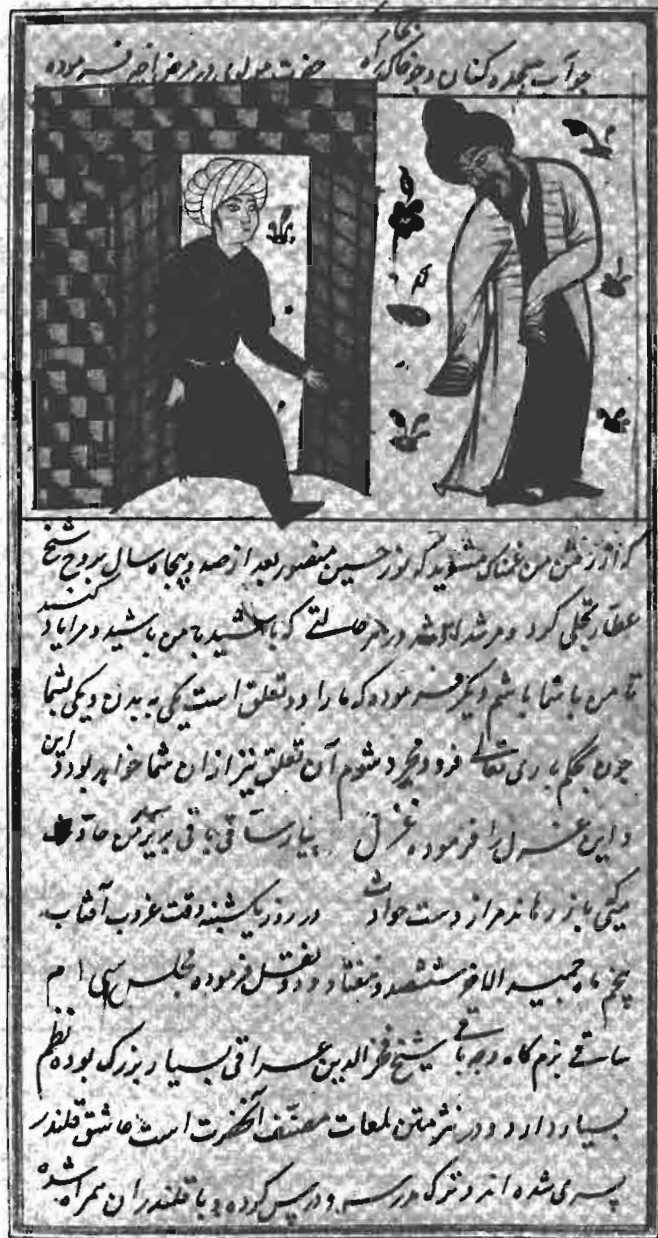 چو آب سجده کنان و جو خاک راه حضرت مولوی در مرض اخیر فرموده
که از رفتن من غمناک مشوید که نور حسین منصور بعد از صد و پنجاه سال بر روح شیخ
عطار تجلی کرد و مرشد او شد در هر حالتی که باشید با من باشید و مرا یاد کنید
تا من با شما باشم دیگر فرموده که ما را دو تعلق است یکی به بدن و یکی بشما
چون بحکم باری تعالی فرد و مجرد شوم آن تعلق نیز از آن شما خواهد بود و این
و این غزل را فرموده غزل بیار ساقی باقی
میکنی باز رهاند مرا از دست حوادث در روز یکشنبه وقت غروب آفتاب
پنجم ماه جمید الاخر ششصد و هفتاد و دو نقل فرموده مجلس سی ام
ساقی بزم کاه وجه باقی شیخ فخرالدین عراقی بسیار بزرگ بوده نظم
بسیار دارد و در نثر متن لمعات مصنف آنحضرت است عاشق قلندر
پسری شده اند و ترک مدرسه و درس کرده و با قلندران همراه شده